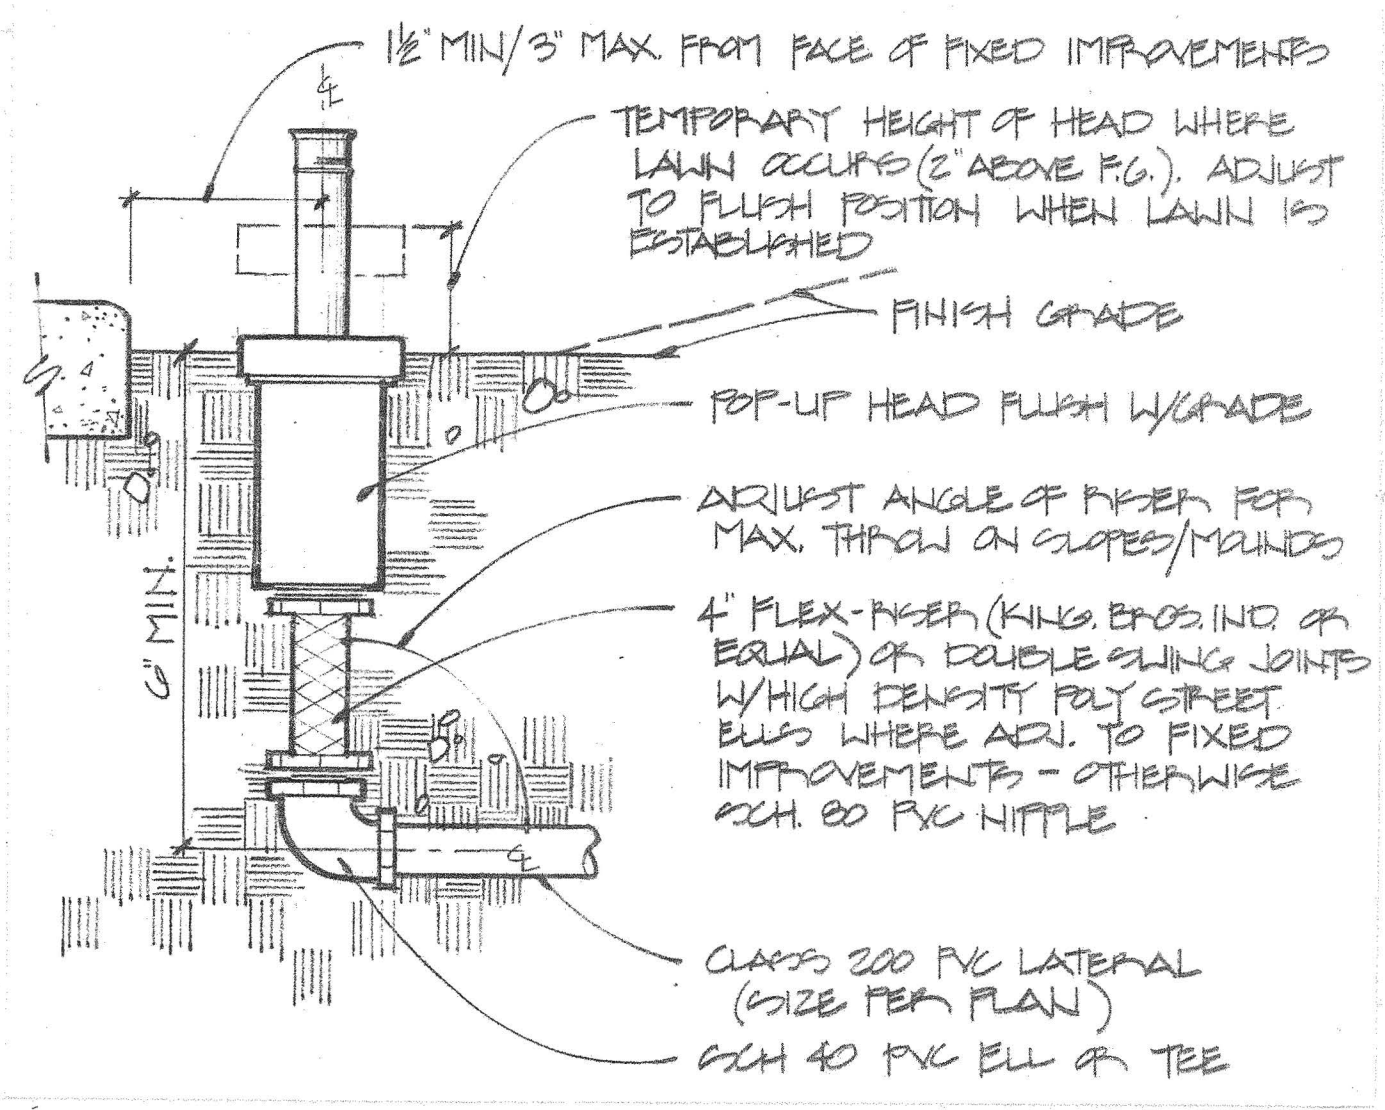 1½" MIN/3" MAX. FROM FACE OF FIXED IMPROVEMENTS
℄
TEMPORARY HEIGHT OF HEAD WHERE
LAWN OCCURS (2" ABOVE F.G.). ADJUST
TO FLUSH POSITION WHEN LAWN IS
ESTABLISHED
FINISH GRADE
POP-UP HEAD FLUSH W/GRADE
ADJUST ANGLE OF RISER FOR
MAX. THROW ON SLOPES/MOUNDS
6" MIN.
4" FLEX-RISER (KING. BROS. IND. OR
EQUAL) OR DOUBLE SWING JOINTS
W/HIGH DENSITY POLY STREET
ELLS WHERE ADJ. TO FIXED
IMPROVEMENTS - OTHERWISE
SCH. 80 PVC NIPPLE
℄
CLASS 200 PVC LATERAL
(SIZE PER PLAN)
SCH 40 PVC ELL OR TEE